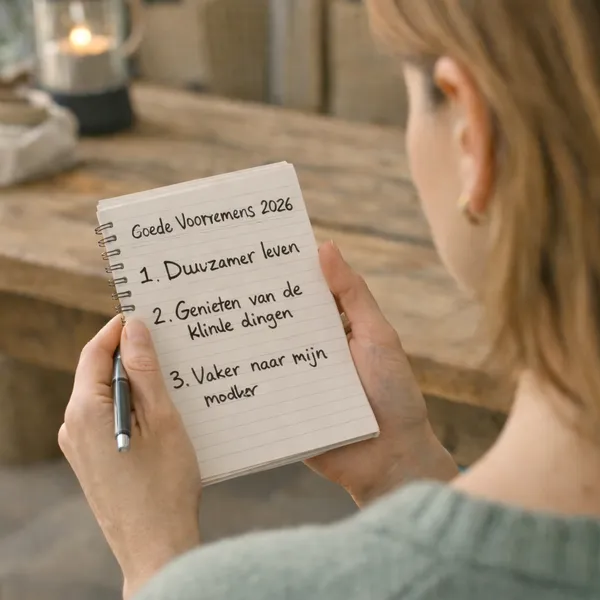 Goede Voorremens 2026
1. Duuzamer leven
2. Genieten van de
klinde dingen
3. Vaker naar mijn
modker